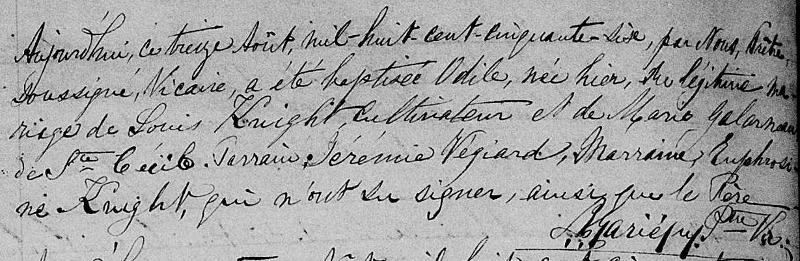 Aujourd'hui, ce treize Août, mil-huit-cent-cinquante-six, par Nous, Prêtre,
Soussigné, Vicaire, a été baptisée Odile, née hier, du légitime ma-
riage de Louis Knight cultivateur et de Marie Galarneau
de Ste Cécile. Parrain, Jérémie Végiard, Marraine, Euphrosi-
ne Knight, qui n'ont su signer, ainsi que le Père
Ptre Vic.